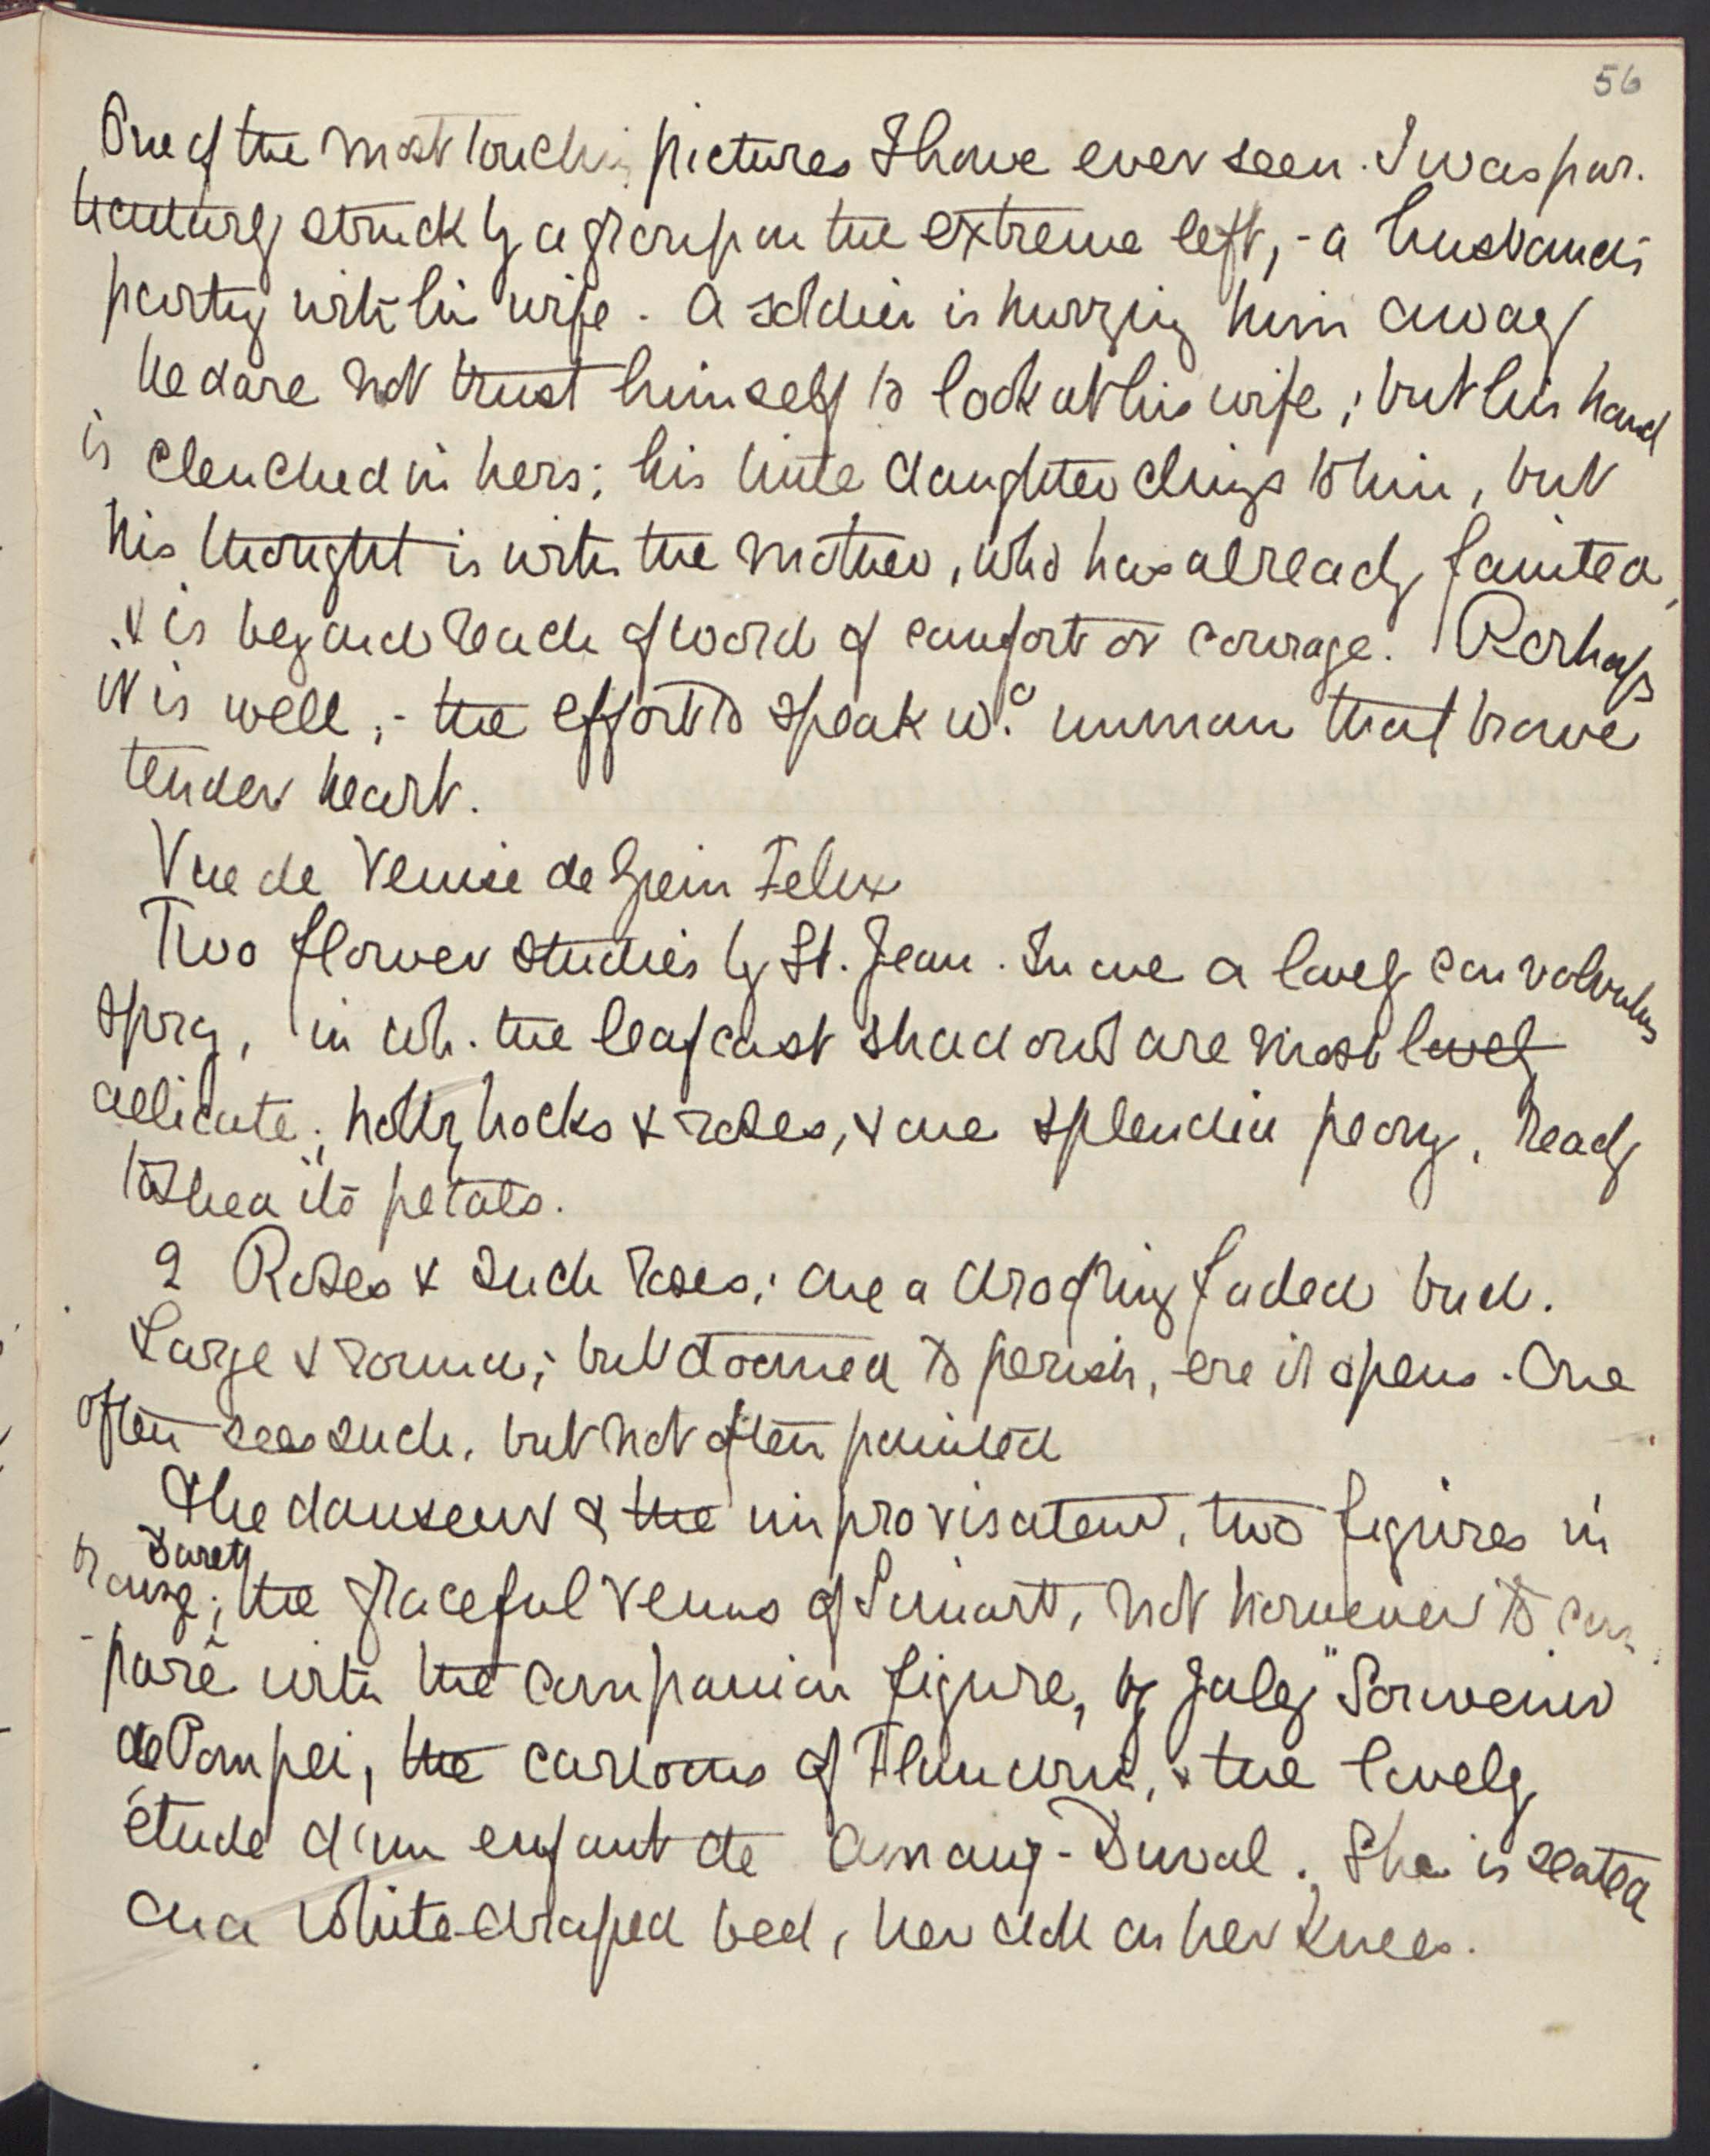 56
One of the most touching pictures I have ever seen. I was par-
ticularly struck by a group on the extreme left, - a husband's
parting with his wife. A soldier is hurrying him away
he dare not trust himself to look at his wife; but his hand
is clenched in hers; his little daughter clings to him, but
his thought is with the mother, who has already fainted,
& is beyond reach of word of comfort or courage. Perhaps
it is well; - the effort to speak wd. unman that brave
tender heart.
Vue de Venise de Felix
Two flower studies by St. Jean. In one a lovely convolvulus
spray, in wh. the leaf cast shadows are most lovely
delicate; hollyhocks & roses, & one splendid peony, ready
to shed its petals.
2 Roses & such roses; one a drooping faded bud.
Large & round; but doomed to perish, ere it opens. One
often sees such, but not often painted
The danseur & the improvisateur, two figures in
Duret
bronze; the graceful Venus of Simart, not however to com-
pare with the companion figure, by Jaley "Souvenir
de Pompei, the cartoons of Flandrin, & the lovely
étude d'un enfant de Amaury-Duval. She is seated
on a white-draped bed, her doll on her knees.